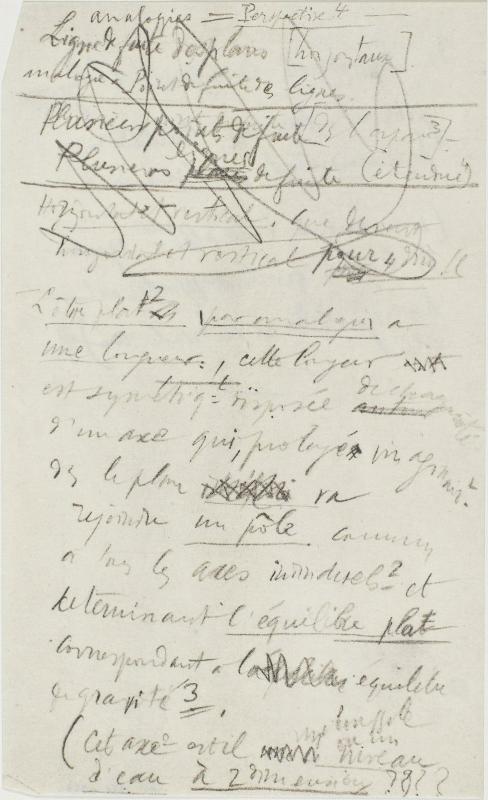 analogies = Perspective 4
Ligne de fuite des plans [horizontaux]
analogie à Point de fuite des lignes
Plusieurs points de fuite [de l'espace 3]
Plusieurs lignes de fuite (étendue)
Horizontal et vertical. que devient
horizontal et vertical pour 4 dim !!
L'être plat 2 par analogie a
une longueur :, cette longueur
est symétriqt disposée de chaque côté
d'un axe qui, prolongé imaginairt
ds le plan va
rejoindre un pôle commun
à tous les axes individuels 2 et
determinant l'équilibre plat
correspondant à l' équilibre
de gravité 3.
(Cet axe est il une boussole
ou un niveau
d'eau à 2 dimensions ????